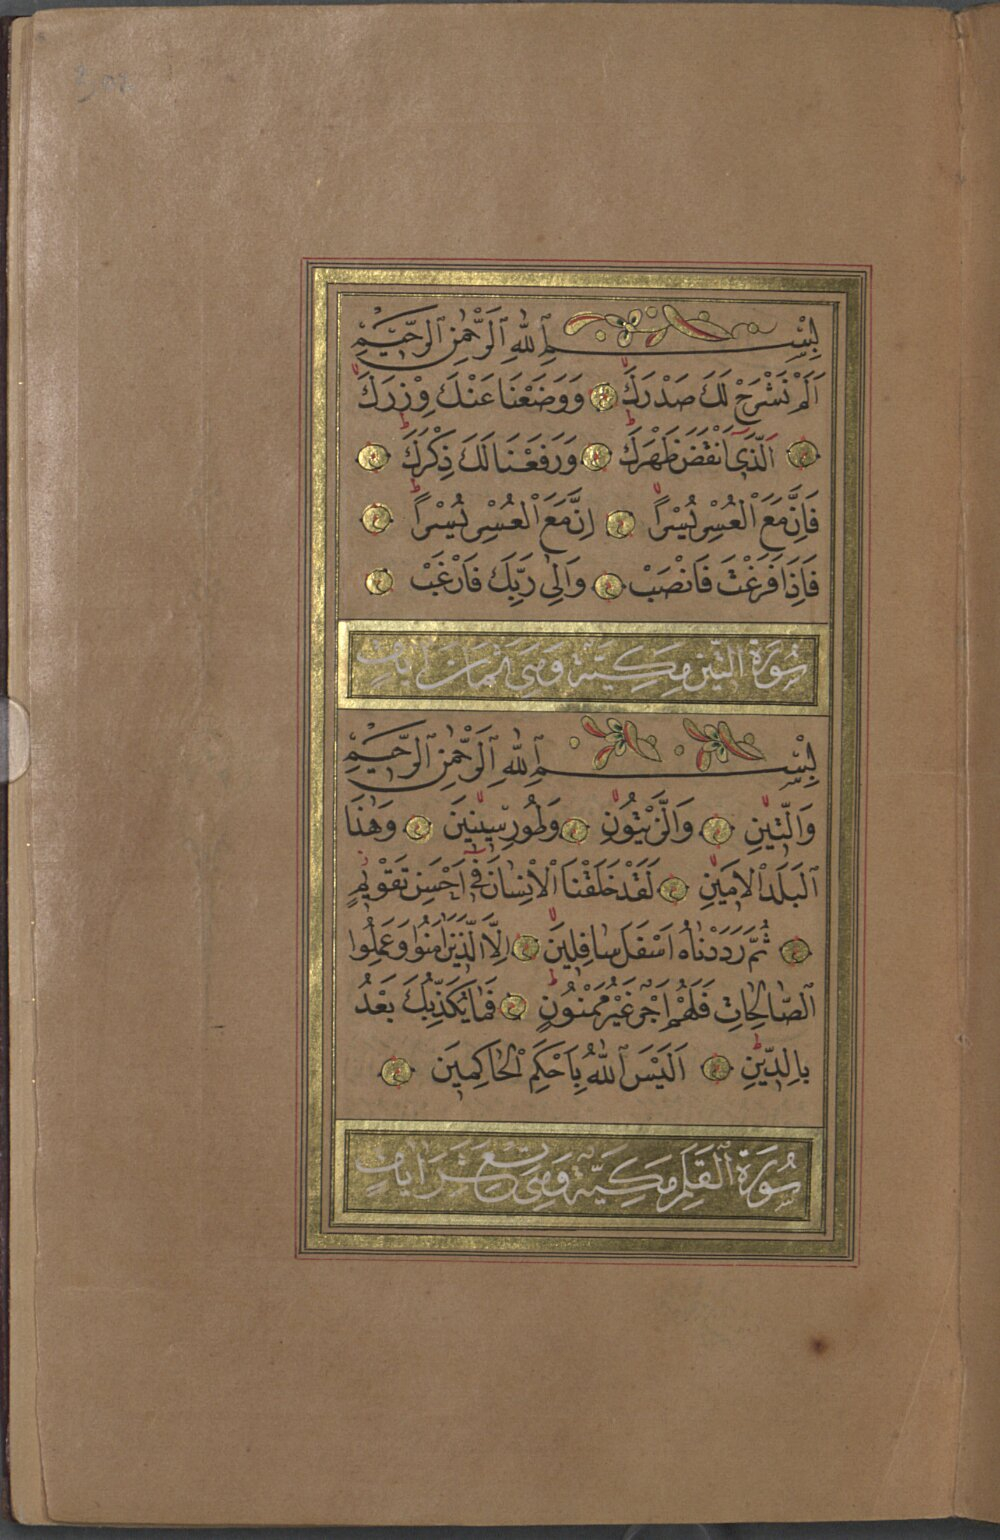 بِسْمِ ٱللّٰهِ ٱلرَّحْمٰنِ ٱلرَّحِيمِ
اَلَمْ نَشْرَحْ لَكَ صَدْرَكَ وَوَضَعْنَا عَنْكَ وِزْرَكَ
اَلَّذٓى اَنْقَضَ ظَهْرَكَ وَرَفَعْنَا لَكَ ذِكْرَكَ
فَاِنَّ مَعَ الْعُسْرِ يُسْرًا اِنَّ مَعَ الْعُسْرِ يُسْرًا
فَاِذَا فَرَغْتَ فَانْصَبْ وَاِلٰى رَبِّكَ فَارْغَبْ
سُورَةُ التِّينِ مَكِّيَّةٌ وَهِىَ ثَمَانُ اٰيَاتٍ
بِسْمِ ٱللّٰهِ ٱلرَّحْمٰنِ ٱلرَّحِيمِ
وَالتِّينِ وَالزَّيْتُونِ وَطُورِ سِينِينَ وَهٰذَا
الْبَلَدِ الْاَمِينِ لَقَدْ خَلَقْنَا الْاِنْسَانَ فِٓى اَحْسَنِ تَقْوِيمٍ
ثُمَّ رَدَدْنَاهُ اَسْفَلَ سَافِلِينَ اِلَّا الَّذِينَ اٰمَنُوا وَعَمِلُوا
الصَّالِحَاتِ فَلَهُمْ اَجْرٌ غَيْرُ مَمْنُونٍ فَمَا يُكَذِّبُكَ بَعْدُ
بِالدِّينِ اَلَيْسَ اللّٰهُ بِاَحْكَمِ الْحَاكِمِينَ
سُورَةُ الْقَلَمِ مَكِّيَّةٌ وَهِىَ تِسْعَ عَشَرَ اٰيَاتٍ